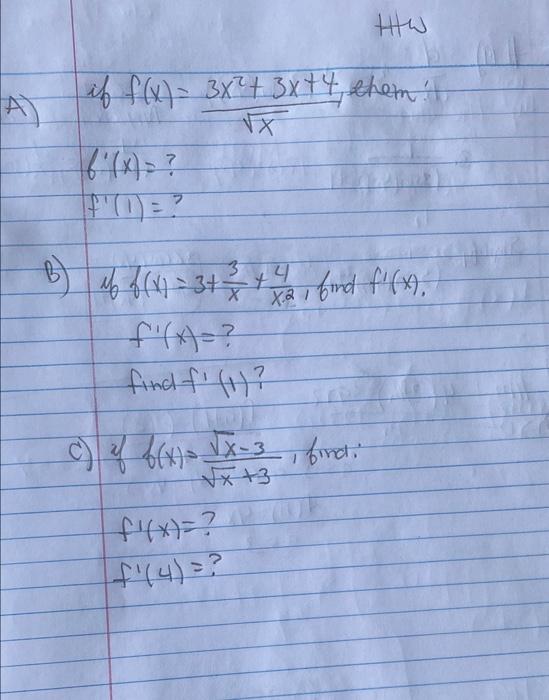 HW
A) if f(x) = (3x² + 3x + 4)/√x, them:
f'(x) = ?
f'(1) = ?
B) if f(x) = 3 + 3/x + 4/x², find f'(x).
f'(x) = ?
find f'(1)?
C) if f(x) = (√x - 3)/(√x + 3), find:
f'(x) = ?
f'(4) = ?